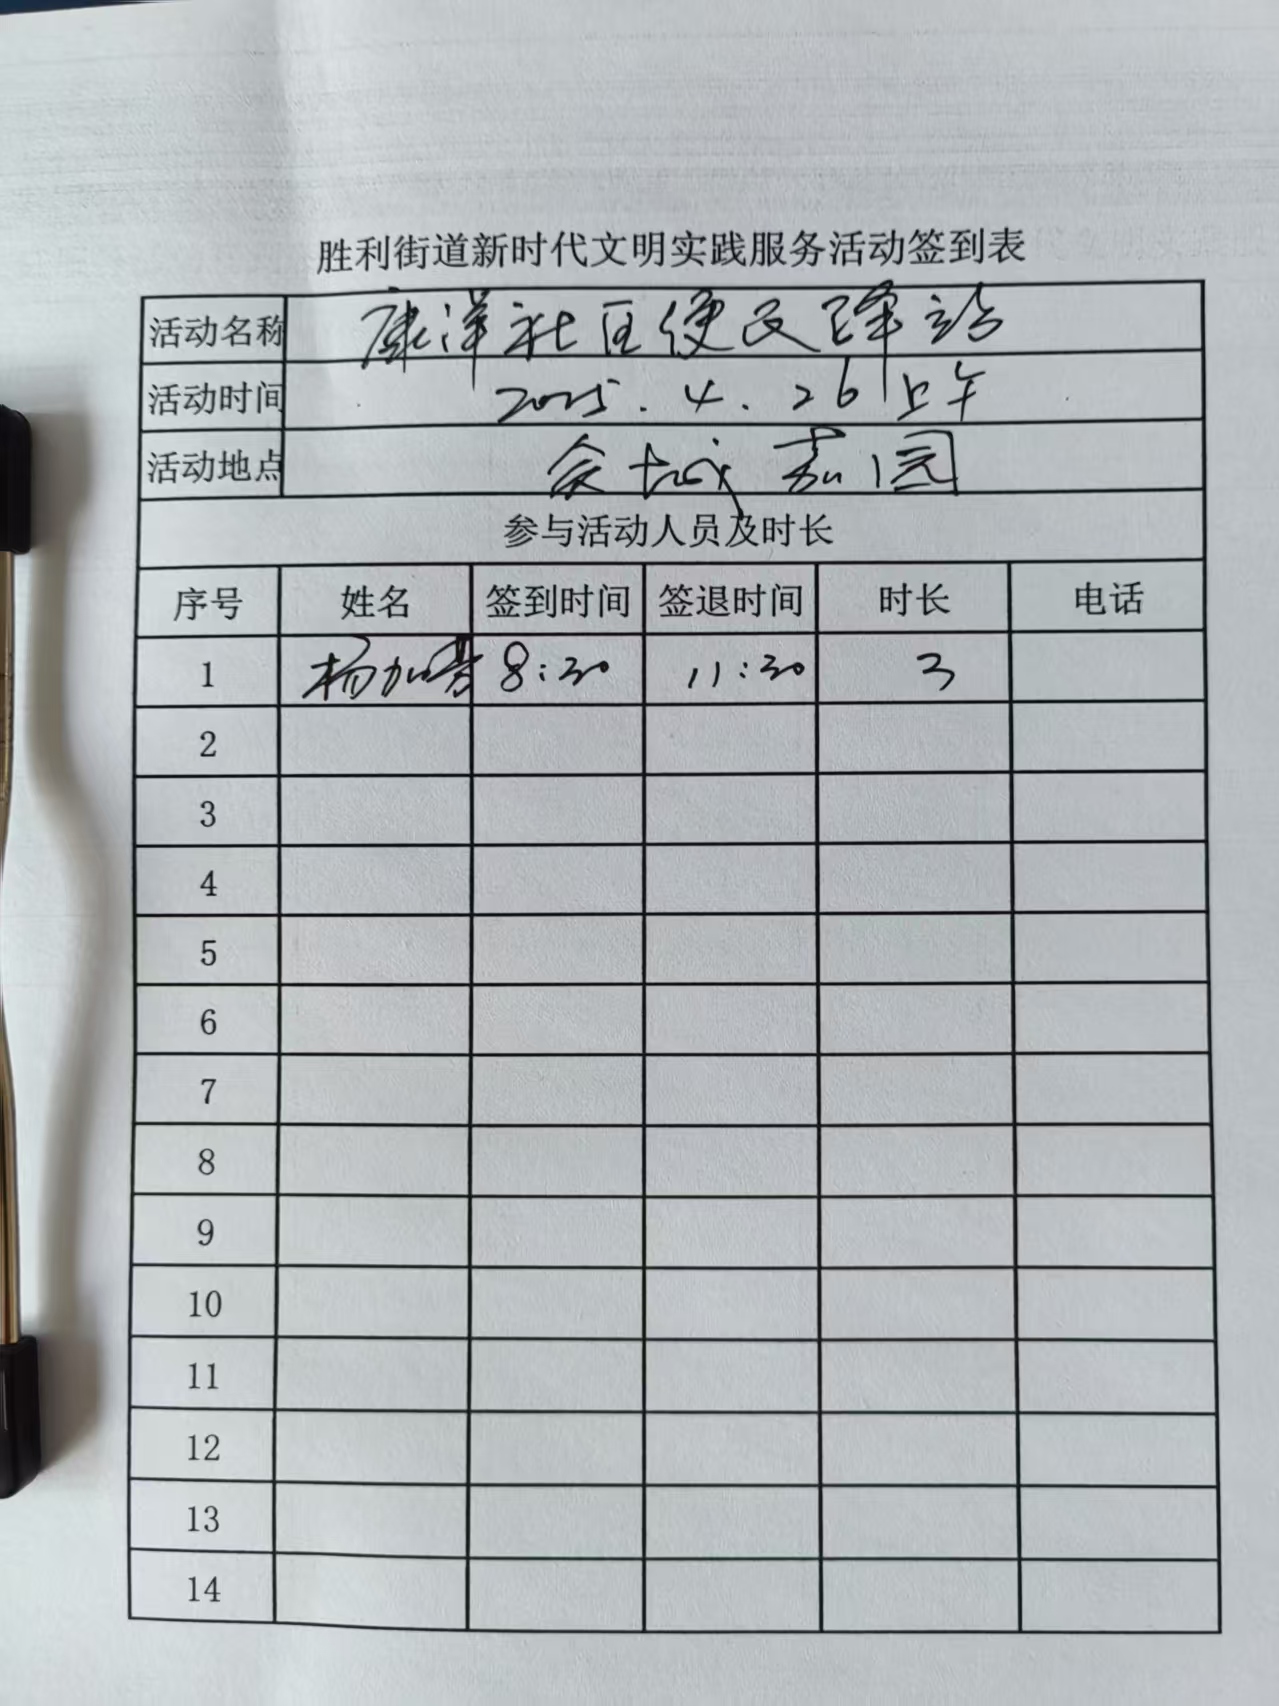 胜利街道新时代文明实践服务活动签到表
活动名称 康泽社区便民驿站
活动时间 2025.4.26上午
活动地点 金城嘉园
参与活动人员及时长
序号 姓名 签到时间 签退时间 时长 电话
1 杨加 8:30 11:30 3
2
3
4
5
6
7
8
9
10
11
12
13
14